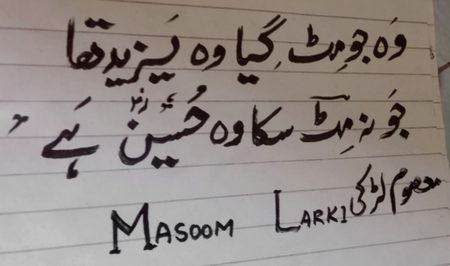 وہ جو مِٹ گیا وہ یزید تھا
جو نہ مِٹ سکا وہ حُسینؓ ہَے
معصوم لڑکی
MASOOM LARKI